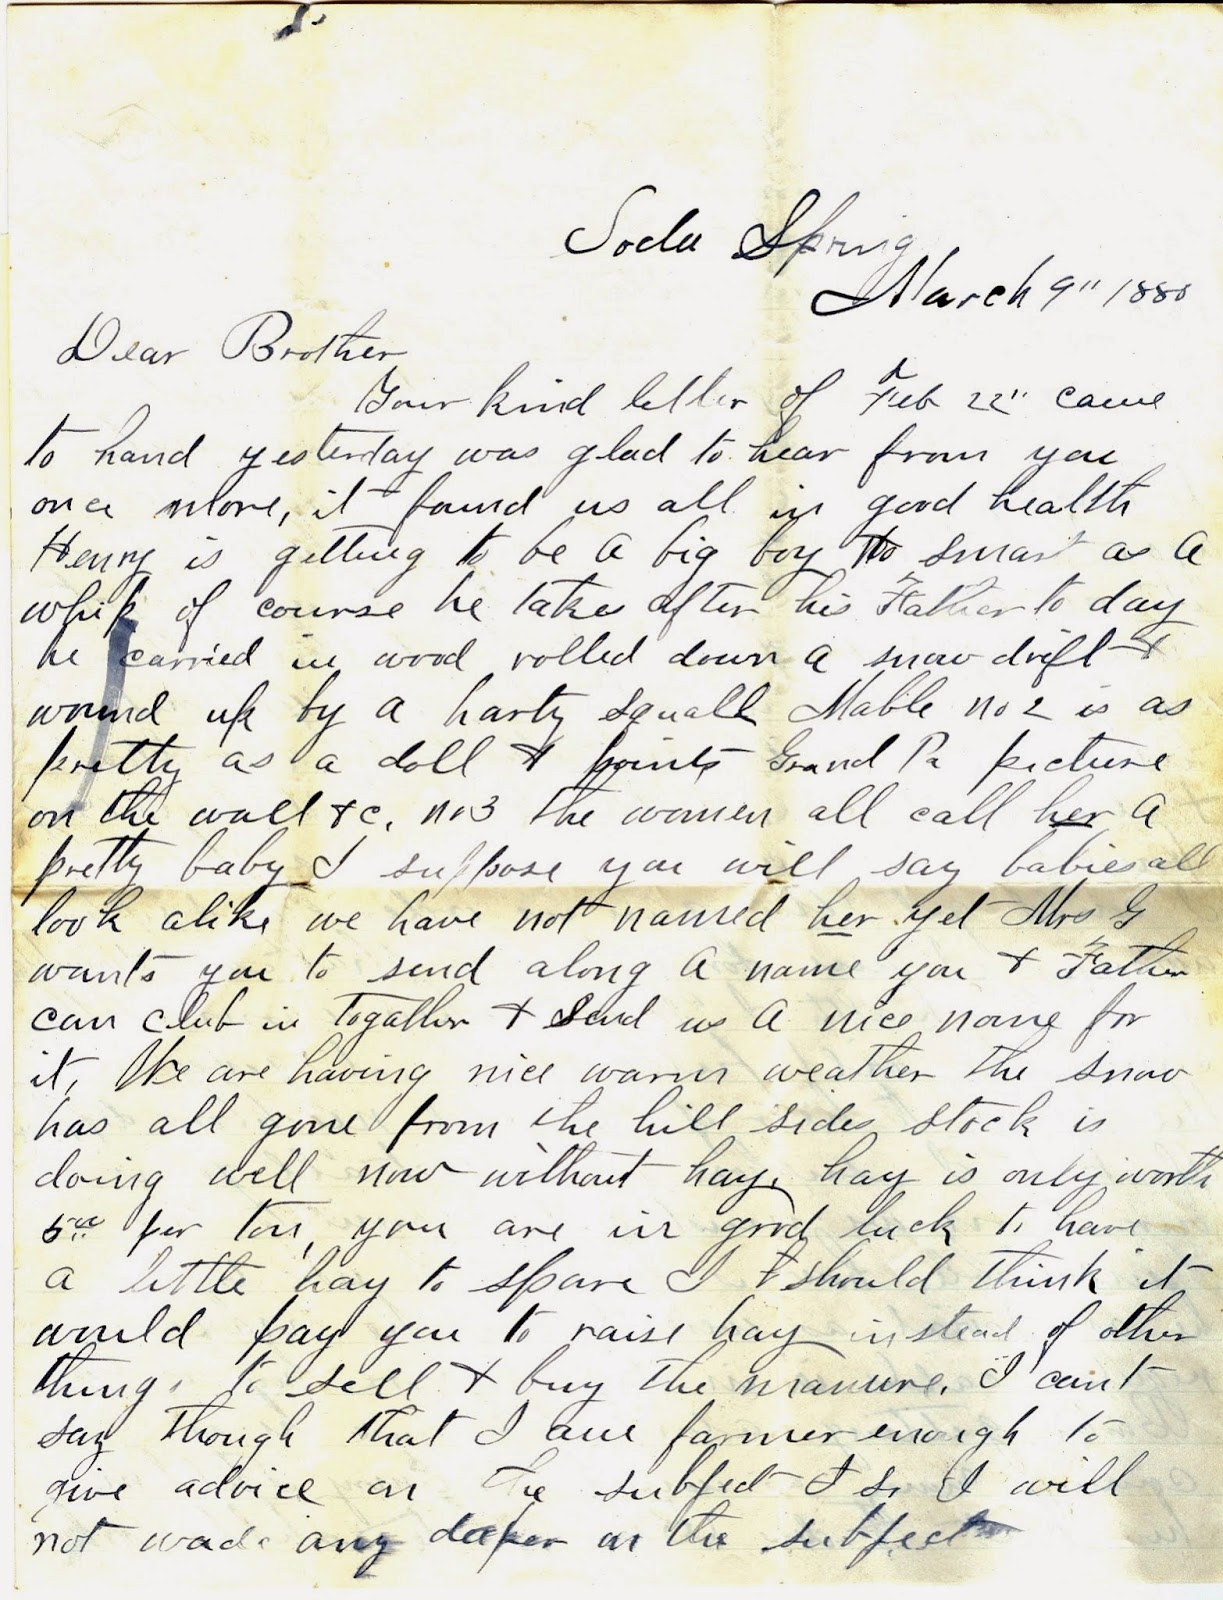 Soda Spring
March 9" 1880
Dear Brother
Your kind letter of Feb 22" came
to hand yesterday was glad to hear from you
once more, it found us all in good health
Henry is getting to be A big boy smart as A
whip of course he takes after his Father to day
he carried in wood rolled down A snow drift &
wound up by A harty squall Mable no 2 is as
pretty as a doll & points Grand Pa picture
on the wall &c, no 3 the women all call her A
pretty baby I suppose you will say babies all
look alike we have not named her yet Mrs G
wants you to send along A name you & Father
can club in togather & Send us A nice name for
it, We are having nice warm weather the snow
has all gone from the hill sides stock is
doing well now without hay, hay is only worth
5 00 per ton, you are in good luck to have
a little hay to spare I should think it
would pay you to raise hay instead of other
things to sell & buy the manure, I cant
say though that I am farmer enough to
give advice on the subject & so I will
not wade any deeper on the subject